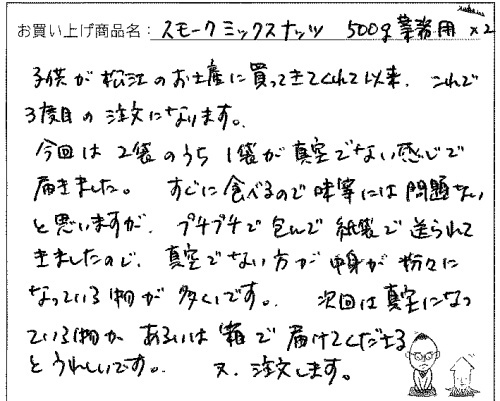 お買い上げ商品名：スモークミックスナッツ 500g業務用 x2
子供が松江のお土産に買ってきてくれて以来、これで
3度目の注文になります。
今回は2袋のうち1袋が真空でない感じで
届きました。 すぐに食べるので味等には問題ない
と思いますが、プチプチで包んで紙袋で送られて
きましたので、真空でない方が中身が粉々に
なっている物が多くいです。 次回は真空になっ
ている物か あるいは箱で届けてくださる
とうれしいです。 又、注文します。